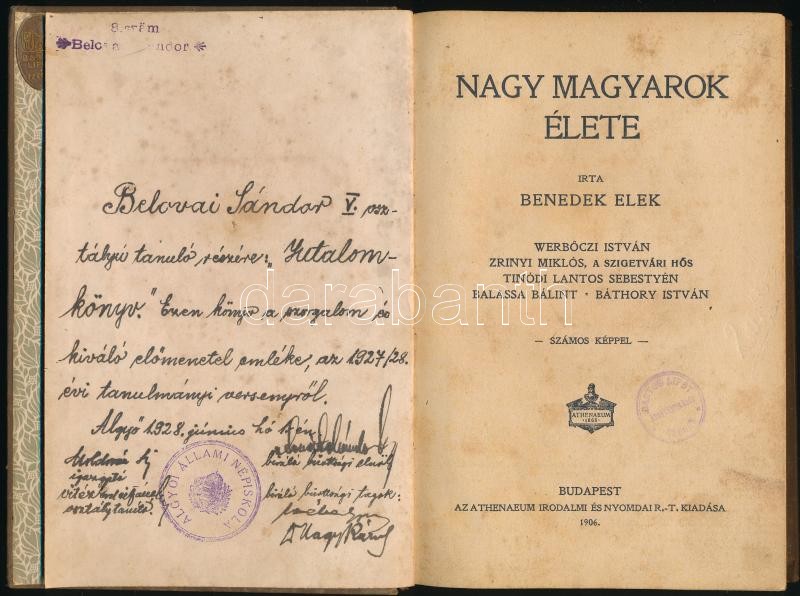 8. szám
Belovai Sándor V. osz-
tályú tanuló részére: „Jutalom-
könyv." Ezen könyv a szorgalom és
kiváló előmenetel emléke, az 1927/28.
évi tanulmányi versenyről.
Algyő 1928. június hó én
igazgató
vitéz
osztálytanító.
biráló bizottsági elnök
biráló bizottsági tagok:
Dr Nagy Károly
ALGYŐI ÁLLAMI NÉPISKOLA
NAGY MAGYAROK
ÉLETE
IRTA
BENEDEK ELEK
WERBŐCZI ISTVÁN
ZRINYI MIKLÓS, A SZIGETVÁRI HŐS
TINÓDI LANTOS SEBESTYÉN
BALASSA BÁLINT · BÁTHORY ISTVÁN
— SZÁMOS KÉPPEL —
ATHENAEUM
1868
BUDAPEST
AZ ATHENAEUM IRODALMI ÉS NYOMDAI R.-T. KIADÁSA
1906.
darabanth